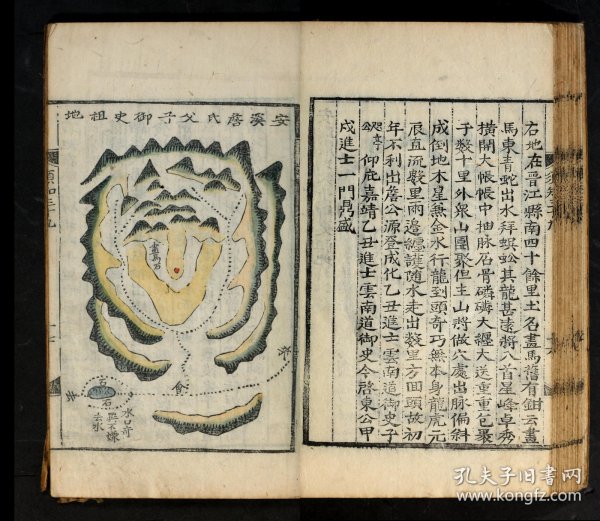 右地在晉江縣南四十餘里土名畫馬舊有鉗云畫
馬東青蛇出水拜蜈蚣其龍甚遠將八首星峰卓秀
橫開大帳帳中抽脉石骨磷磷大纏大送重重包裹
子數十里外衆山團聚但主山將做穴處出脉偏斜
成倒地木星無金水行龍到頭奇巧無本身龍虎元
辰直流數里兩邊纏護隨水走出數里方回頭故初
年不利出詹公源登成化乙丑進士雲南道御史子
公仰庇嘉靖乙丑進士雲南道御史今啓東公甲
戌進士一門鼎盛
安溪詹氏父子御史祖地
畫馬石
水口奇
石
去
孔夫子旧书网
www.kongfz.com